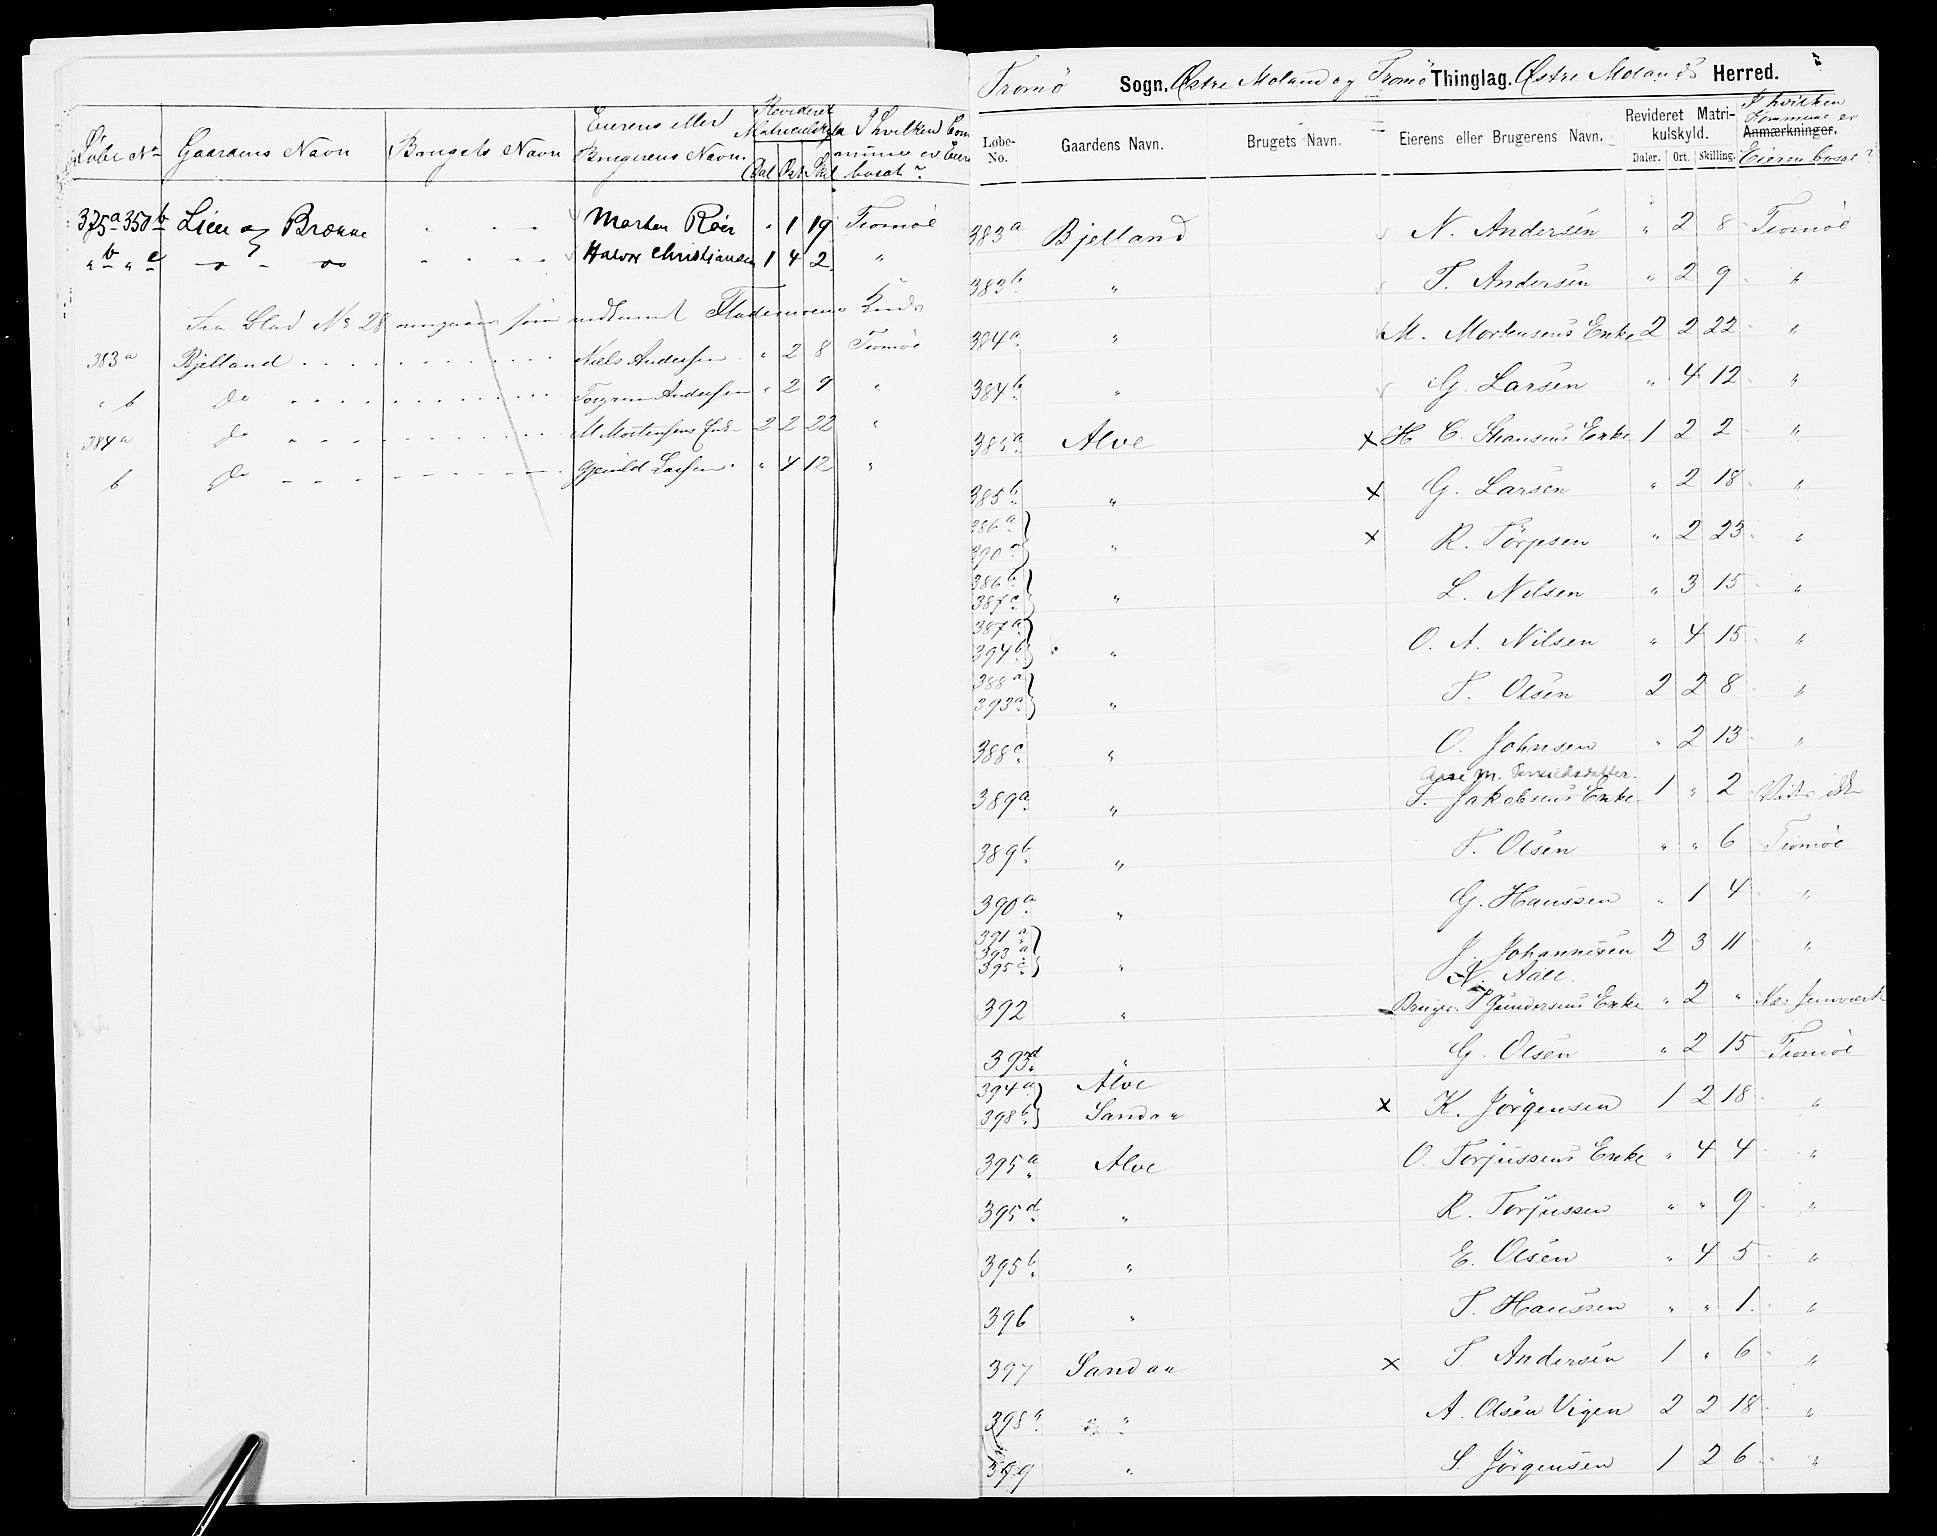 Løbe No Gaardens Navn Brugets Navn Eierens eller Brugerens Navn. Revideret Matriculskyld Dal Ort Skil I hvilken Commune er Eieren bosat?
375a 350b Lien og Brønne Morten Röer " 1 19 Tromöe
" b " c " - " Halvor Christiansen 1 4 2 "
Fra Blad No 28
383a Bjelland Niels Andersen " 2 8 Tromöe
" b Do Andersen " 2 9 "
384a Do M Mortensens Enke 2 2 22 "
b Do Gjeruld Larsen " 4 12 "
Tromö Sogn. Østre Moland og Tromö Thinglag. Østre Molands Herred.
Løbe-No. Gaardens Navn. Brugets Navn. Eierens eller Brugerens Navn. Revideret Matrikulskyld. Daler. Ort. Skilling. Anmærkninger. I hvilken Kommune er Eieren bosat?
383a Bjelland N. Andersen " 2 8 Tromöe
383b " T. Andersen " 2 9 "
384a " M. Mortensens Enke 2 2 22 "
384b " G. Larsen " 4 12 "
385a Alve x H. C. Hansens Enke 1 2 2 "
385b " x G. Larsen " 2 18 "
386a 390c " x R. Törjesen " 2 23 "
386b 387c " L. Nilsen " 3 15 "
387a 394b " O. A. Nilsen " 4 15 "
388a 393a " T. Olsen 2 2 8 "
388c " O. Johnsen " 2 13 "
Ane M.
389a " T. Jakobsens Enke 1 " 2
389b " T. Olsen " " 6 Tromöe
390a " G. Hanssen " 1 4 "
391a 393a 395c " J. Johannesen 2 3 11 "
N. Aall
392 " Bruger T Gundersens Enke " 2 " Næs Jernværk
393d " G. Olsen " 2 15 Tromöe
394a Alve
398b Sandaa x K. Jörgensen 1 2 18 "
395a Alve O. Torjussens Enke " 4 4 "
395d " R. Torjussen " " 9 "
395b " E. Olsen " 4 5 "
396 " T. Hanssen " " 1 "
397 Sandaa x T. Andersen 1 " 6 "
398a " A. Olsen Vigen 2 2 18 "
399 " S. Jörgensen 1 2 6 "